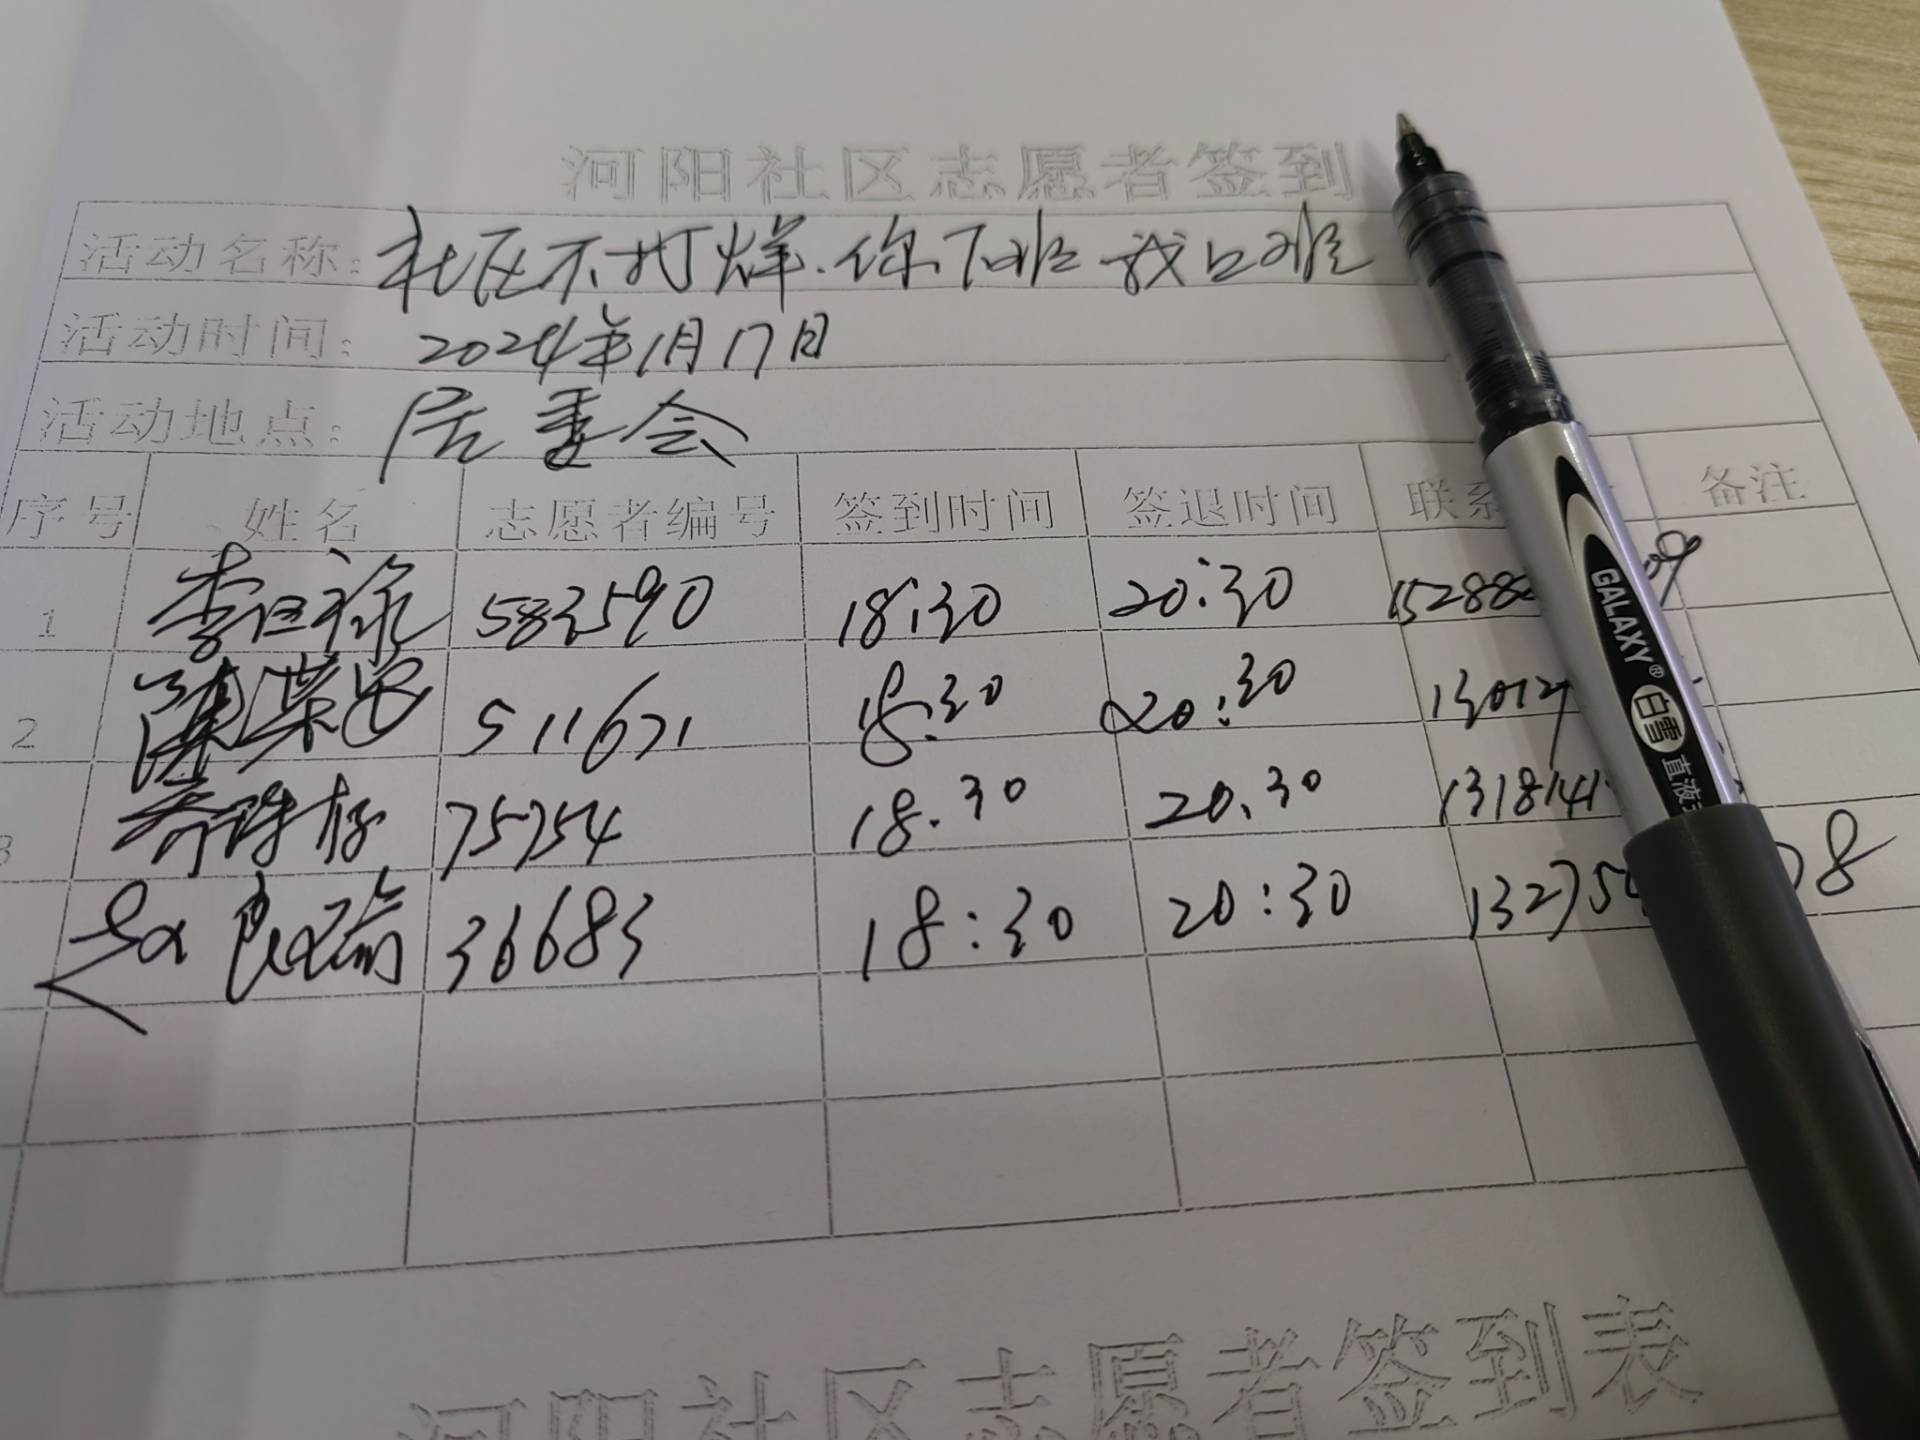 河阳社区志愿者签到
活动名称: 社区不打烊.你下班 我
活动时间: 2024年1月17日
活动地点: 居委会
序号 姓名 志愿者编号 签到时间 签退时间 联系 备注
1 李 583590 18:30 20:30 15288
2 陈 511671 18:30 20:30 13017
3 75754 18.30 20.30 1318141
良瑜 36683 18:30 20:30 13275 08
河阳社区志愿者签到表
GALAXY® 白雪 直液